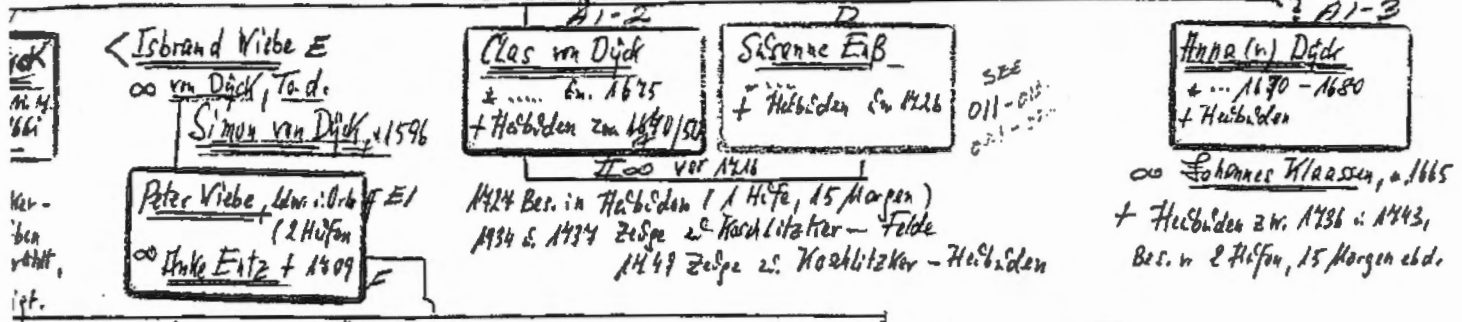 A1-2
D
A1-3
< Isbrand Wiebe E
∞ von Dÿck, To. d.
Simon von Dÿck, * 1596
Peter Wiebe,
E1
(2 Hufen
∞ Anke Entz + 1709
E
Clas von Dÿck
* ..... 1675
+ Heubuden
II ∞ vor 1716
Susanne Enß
+ Heubuden 1726
SEE
011-
1727 Bes. in Heubuden (1 Hufe, 15 Morgen)
1934 u. 1737 Zeuge zu Koschlitzker - Felde
1747 Zeuge zu Koshlitzker - Heubuden
Anna (v) Dÿck
* ... 1670 - 1680
+ Heubuden
∞ Johannes Klaassen, 1665
+ Heubuden zw. 1736 u. 1743,
Bes. v. 2 Hufen, 15 Morgen ebd.